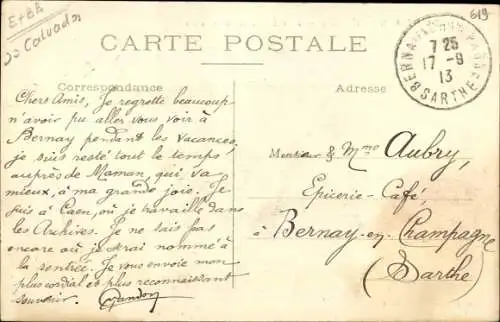 E+BR
D2 Calvados
619
CARTE POSTALE
BERNAY-EN-CHAMPAGNE
7 25
17 - 9
13
SARTHE
Correspondance
Adresse
Chers Amis, Je regrette beaucoup
n'avoir pu aller vous voir à
Bernay pendant les vacances,
je suis resté tout le temps
auprès de Maman, qui va
mieux, à ma grande joie. Je
suis à Caen, où je travaille dans
les Archives. Je ne sais pas
encore où je serai nommé à
la rentrée. Je vous envoie mon
plus cordial et plus reconnaissant
souvenir.
Monsieur & Mme Aubry,
Epicerie-Café,
à Bernay-en-Champagne
(Sarthe)